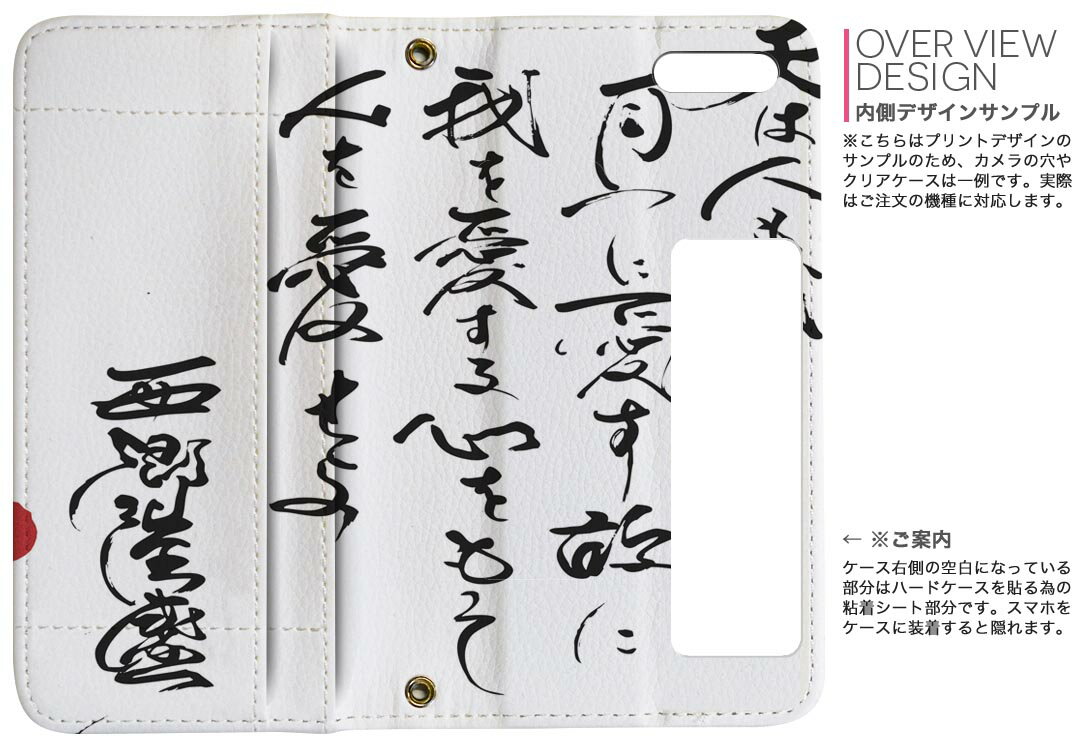 天は人も我も
同一に愛す故に
我を愛する心をもって
人を愛せよ
西郷隆盛
OVER VIEW
DESIGN
内側デザインサンプル
※こちらはプリントデザインの
サンプルのため、カメラの穴や
クリアケースは一例です。実際
はご注文の機種に対応します。
← ※ご案内
ケース右側の空白になっている
部分はハードケースを貼る為の
粘着シート部分です。スマホを
ケースに装着すると隠れます。